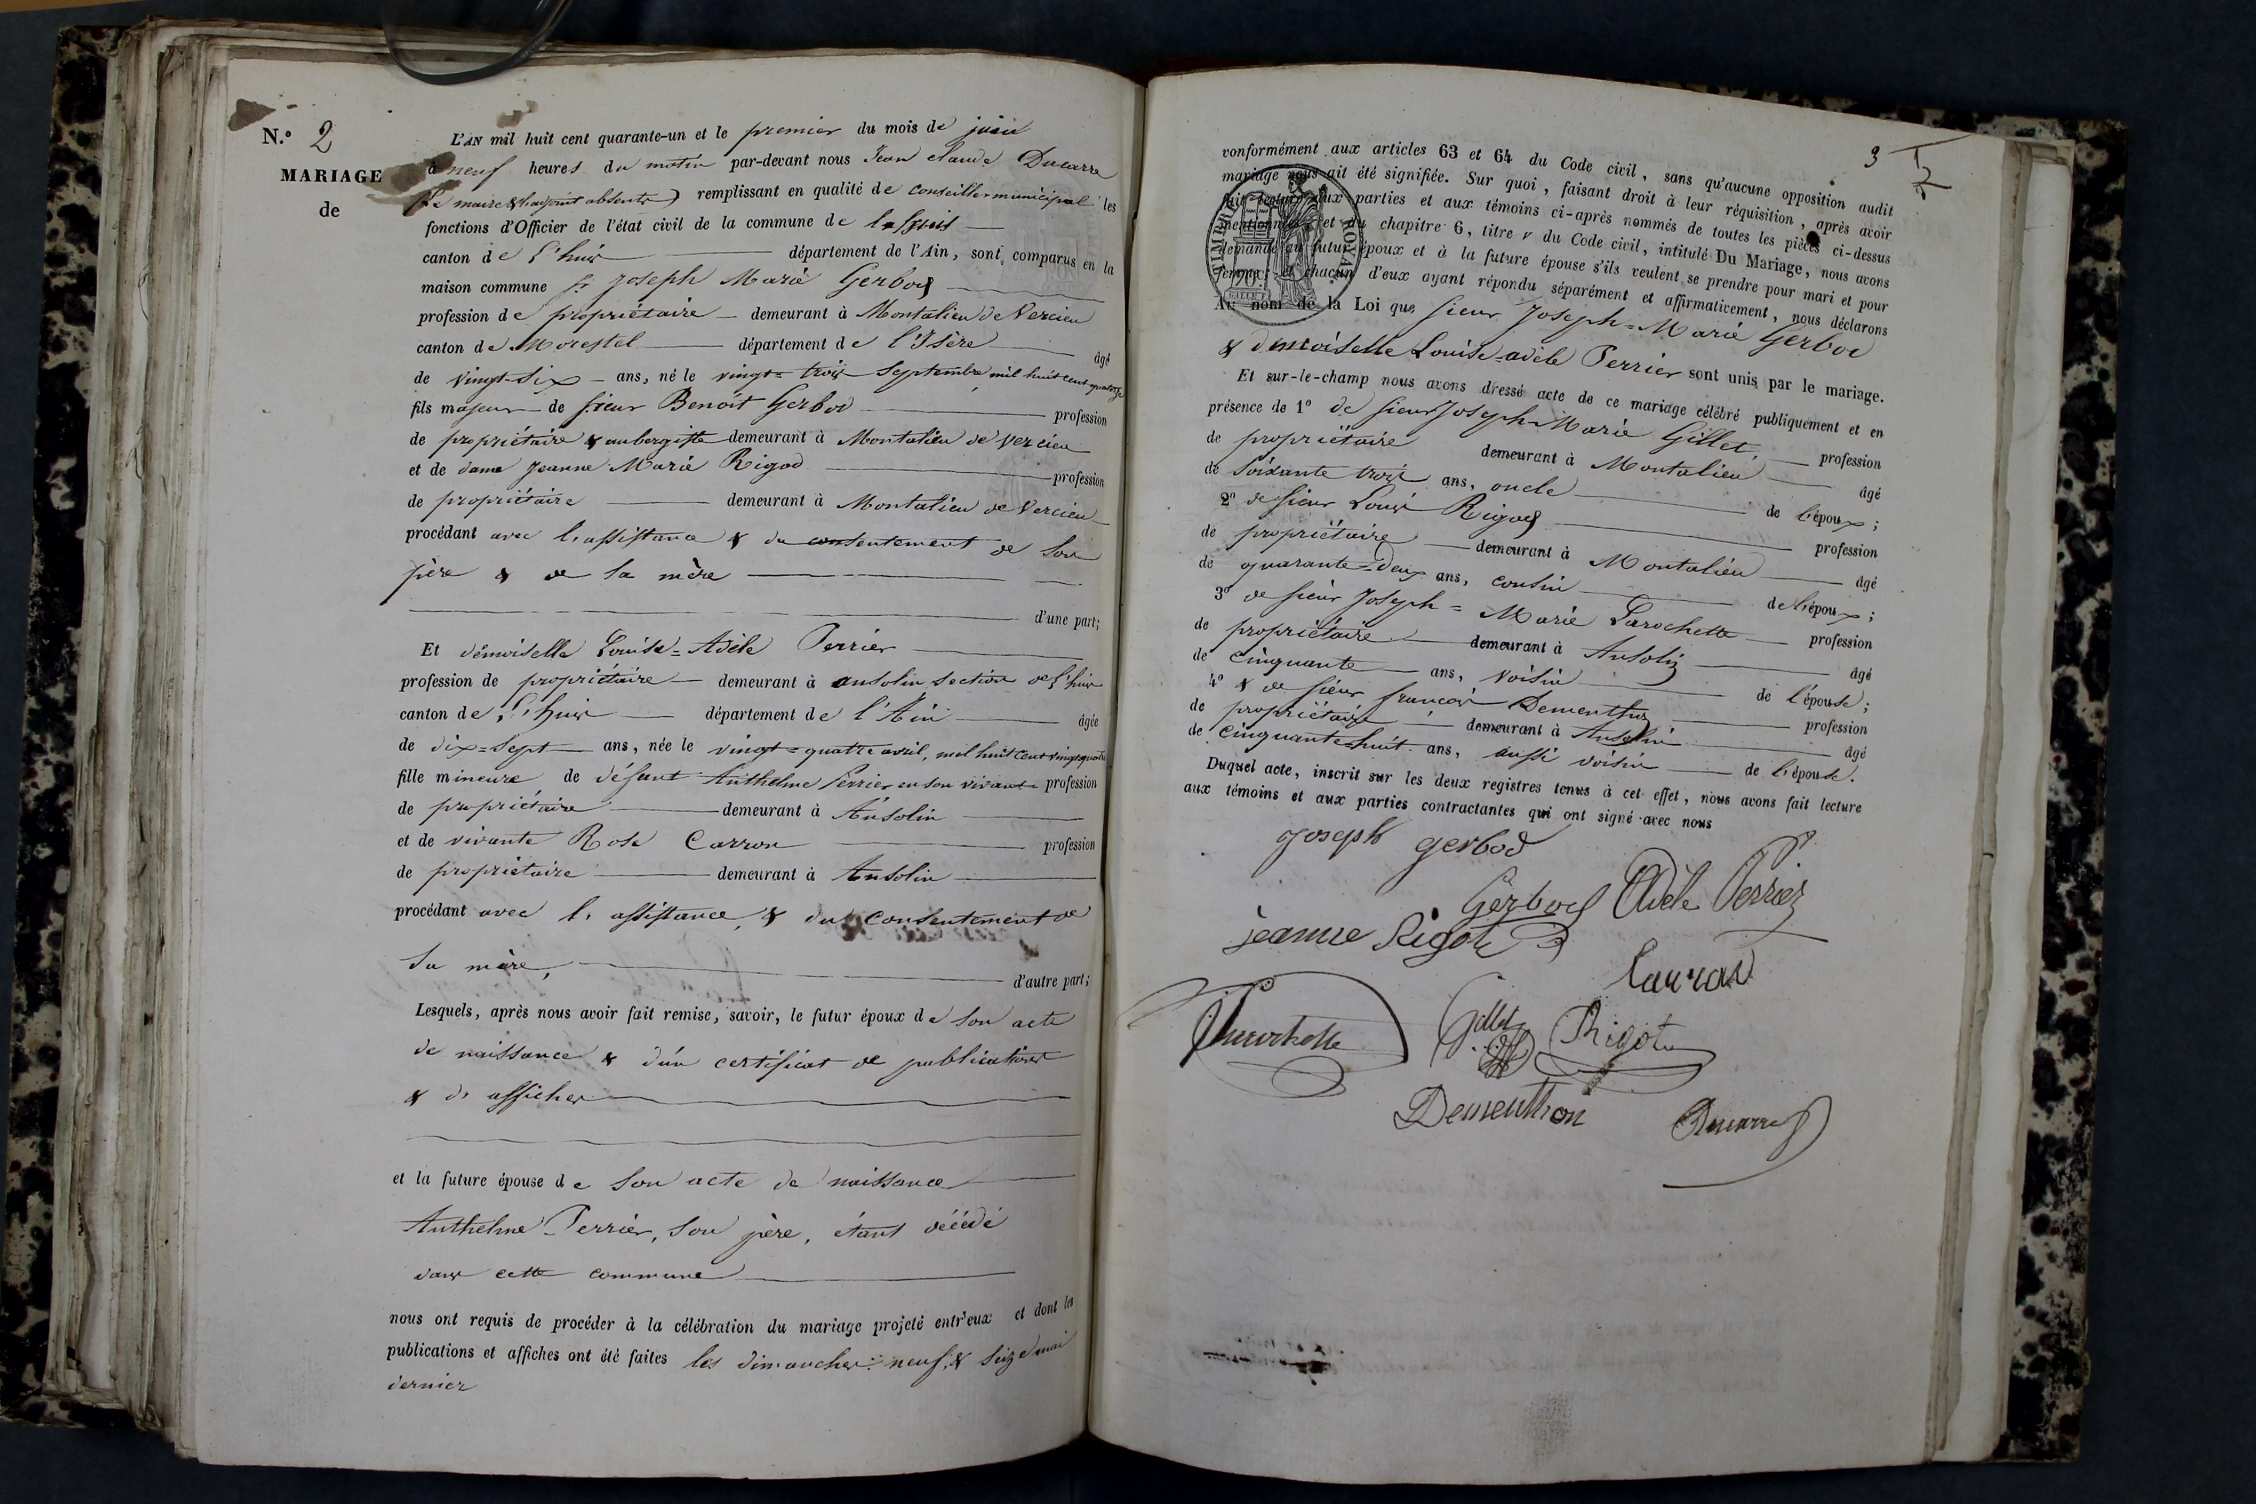 N.º 2
MARIAGE
de
L'AN mil huit cent quarante-un et le premier du mois de juin
à neuf heures du matin par-devant nous Jean claude Ducarre
(le maire & l'adjoint absents) remplissant en qualité de conseiller municipal les
fonctions d'Officier de l'état civil de la commune de
canton de l'huis département de l'Ain, sont comparus en la
maison commune Sr Joseph Marie Gerbod
profession de propriétaire demeurant à Montalieu de Vercieu
canton de Morestel département de l'Isère âgé
de vingt-six ans, né le vingt-trois Septembre mil huit cent quatorze
fils majeur de sieur Benoît Gerbod profession
de propriétaire & aubergiste demeurant à Montalieu de Vercieu
et de dame Jeanne Marie Rigod profession
de propriétaire demeurant à Montalieu de Vercieu
procédant avec l'assistance & du consentement de son
père & de sa mère
d'une part;
Et demoiselle Louise=Adèle Perrier
profession de propriétaire demeurant à ansolin section de l'huis
canton de l'huis département de l'Ain âgée
de dix=sept ans, née le vingt=quatre avril, mil huit cent vingt quatre
fille mineure de défunt Anthelme Perrier en son vivant profession
de propriétaire demeurant à Ansolin
et de vivante Rose Carron profession
de propriétaire demeurant à Ansolin
procédant avec l'assistance, & du consentement de
sa mère, d'autre part;
Lesquels, après nous avoir fait remise, savoir, le futur époux de son acte
de naissance & d'un certificat de publications
& d'affiches
et la future épouse de son acte de naissance
Anthelme Perrier, son père, étant décédé
dans cette commune
nous ont requis de procéder à la célébration du mariage projeté entr'eux et dont les
publications et affiches ont été faites les dimanches neuf, & seize mai
dernier
3
conformément aux articles 63 et 64 du Code civil, sans qu'aucune opposition audit
mariage nous ait été signifiée. Sur quoi, faisant droit à leur réquisition, après avoir
fait lecture aux parties et aux témoins ci-après nommés de toutes les pièces ci-dessus
mentionnées et du chapitre 6, titre v du Code civil, intitulé Du Mariage, nous avons
demandé au futur époux et à la future épouse s'ils veulent se prendre pour mari et pour
femme; et chacun d'eux ayant répondu séparément et affirmativement, nous déclarons
TIMBRE ROYAL
Au nom de la Loi que sieur Joseph=Marie Gerbod
& demoiselle Louise=adèle Perrier sont unis par le mariage.
Et sur-le-champ nous avons dressé acte de ce mariage célébré publiquement et en
présence de 1º de sieur Joseph-Marie Gillet, profession
de propriétaire demeurant à Montalieu âgé
de soixante trois ans, oncle de l'époux;
2º de sieur Louis Rigod profession
de propriétaire demeurant à Montalieu âgé
de quarante=deux ans, cousin de l'époux;
3º de sieur Joseph=Marie Larochette profession
de propriétaire demeurant à Ansolin âgé
de cinquante ans, voisin de l'épouse;
4º & de sieur françois Dementhon profession
de propriétaire demeurant à Ansolin âgé
de cinquante-huit ans, aussi voisin de l'épouse.
Duquel acte, inscrit sur les deux registres tenus à cet effet, nous avons fait lecture
aux témoins et aux parties contractantes qui ont signé avec nous
joseph gerbod
Gerbod Adèle Perrier
jeanne Rigot
Carron
Larochette Gillet Rigot
Dementhon Ducarre